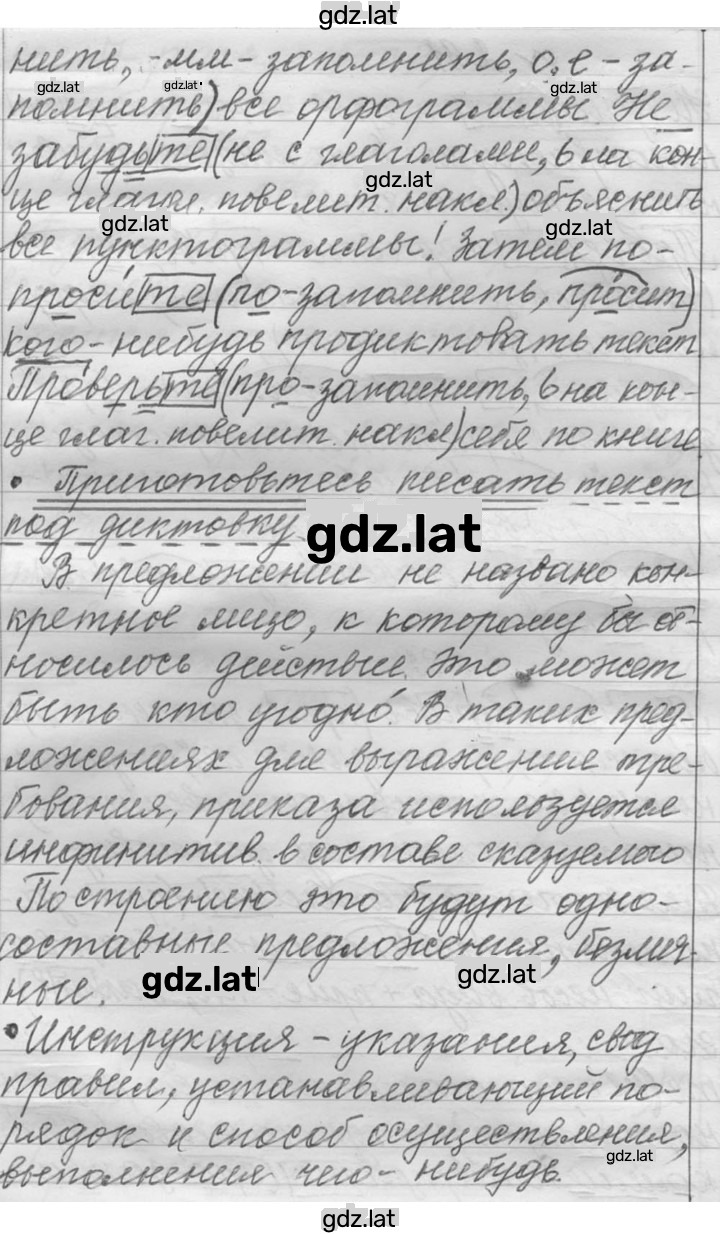 gdz.lat
нить, -мм- запомнить, о, е - за-
gdz.lat gdz.lat gdz.lat
помнить) все орфограммы. Не
забудьте (не с глаголами, ь на кон-
gdz.lat
це глагол. повелит. накл.) объяснить
gdz.lat gdz.lat
все пунктограммы! Затем по-
просите (по-запомнить, просит)
кого-нибудь продиктовать текст
Проверьте (про-запомнить, ь на кон-
це глаг. повелит. накл) себя по книге.
• Приготовьтесь писать текст
под диктовку.
gdz.lat
В предложении не названо кон-
кретное лицо, к которому бы от-
носилось действие. Это может
быть кто угодно. В таких пред-
ложениях для выражения тре-
бования, приказа используется
инфинитив в составе сказуемого
По строению это будут одно-
составные предложения, безлич-
gdz.lat gdz.lat
ные.
• Инструкция - указания, свод
правил, устанавливающий по-
рядок и способ осуществления,
gdz.lat
выполнения чего-нибудь.
gdz.lat